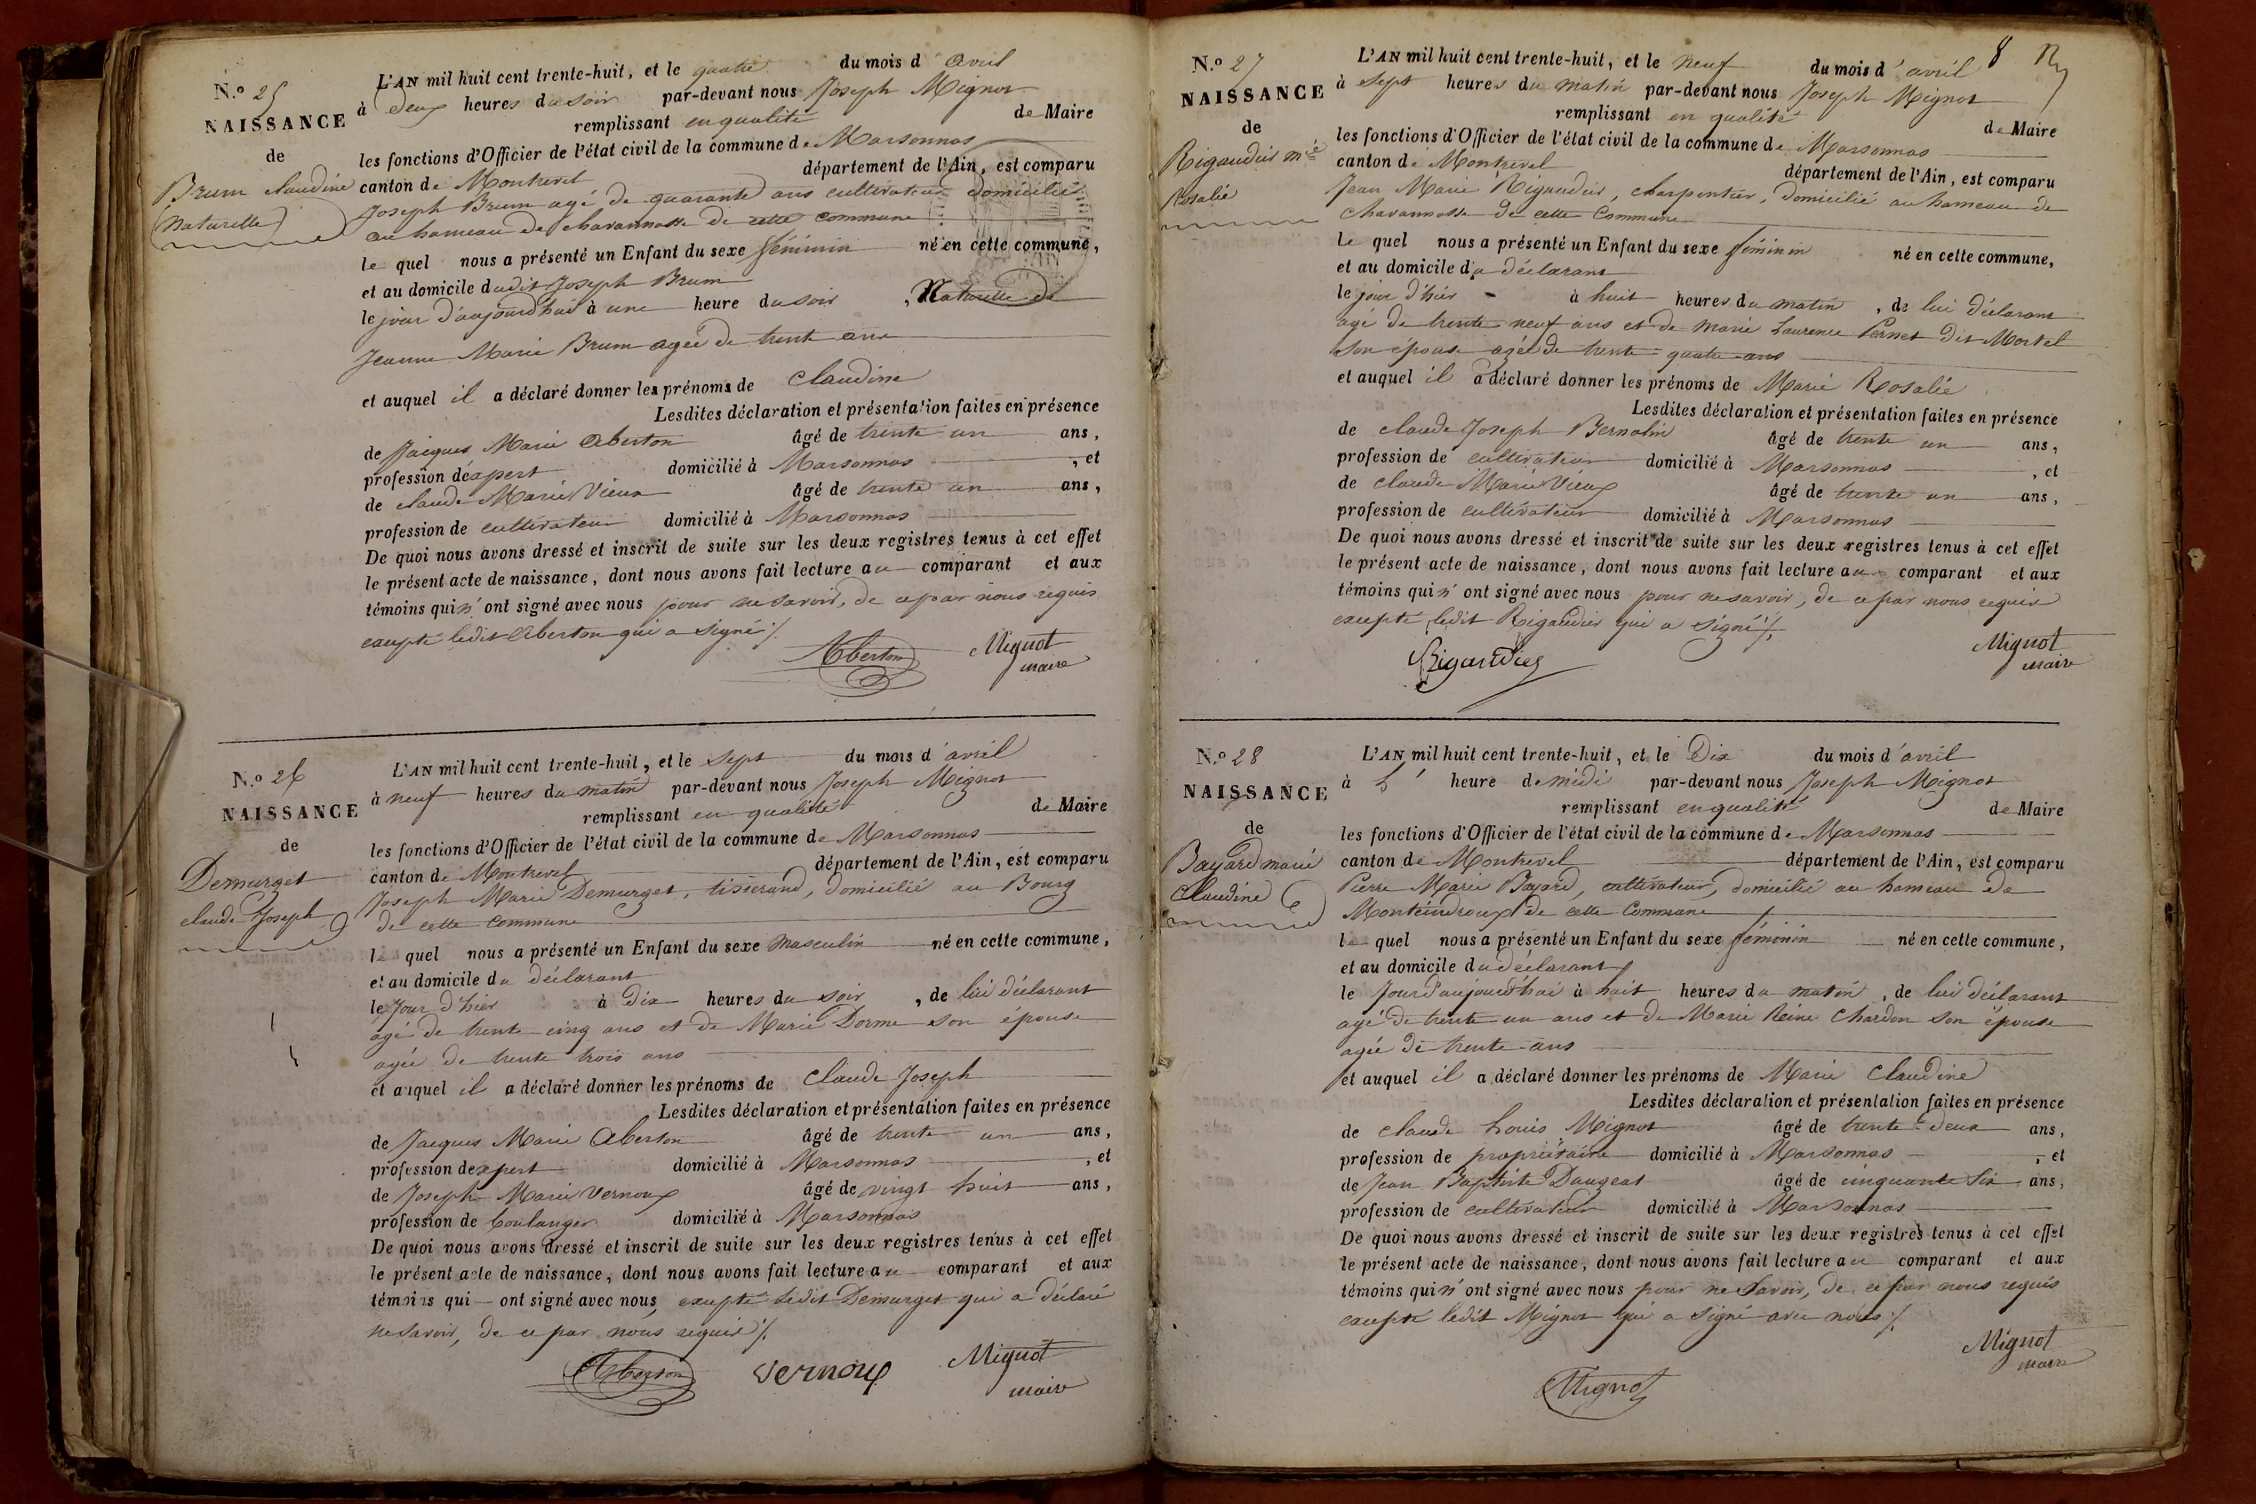 N.º 25
NAISSANCE
de
Brum claudine
(naturelle)
L'AN mil huit cent trente-huit, et le quatre du mois d'avril
à deux heures du soir par-devant nous Joseph Mignot
remplissant en qualité de Maire
les fonctions d'Officier de l'état civil de la commune de Marsonnas
canton de Montrevel département de l'Ain, est comparu
Joseph Brum agé de quarante ans cultivateur domicilié
au hameau de chavannosse de cette commune
le quel nous a présenté un Enfant du sexe féminin né en cette commune,
et au domicile dudit Joseph Brum
le jour d'aujourd'hui à une heure du soir, Naturelle de
Jeanne Marie Brum agée de trent ans
et auquel il a déclaré donner les prénoms de Claudine
Lesdites déclaration et présentation faites en présence
de Jacques Marie Aberton âgé de trente un ans,
profession d'expert domicilié à Marsonnas, et
de claude Marie Vieux âgé de trente un ans,
profession de cultivateur domicilié à Marsonnas
De quoi nous avons dressé et inscrit de suite sur les deux registres tenus à cet effet
le présent acte de naissance, dont nous avons fait lecture au comparant et aux
témoins qui n'ont signé avec nous pour ne savoir, de ce par nous requis
excepté ledit Aberton qui a signé ./.
Aberton Mignot
maire
N.º 26
NAISSANCE
de
Demurget
claude Joseph
L'AN mil huit cent trente-huit, et le sept du mois d'avril
à neuf heures du matin par-devant nous Joseph Mignot
remplissant en qualité de Maire
les fonctions d'Officier de l'état civil de la commune de Marsonnas
canton de Montrevel département de l'Ain, est comparu
Joseph Marie Demurget, tisserand, domicilié au Bourg
de cette commune
le quel nous a présenté un Enfant du sexe masculin né en cette commune,
et au domicile du déclarant
le Jour d'hier à dix heures du soir, de lui déclarant
agé de trente cinq ans et de Marie Dorme son épouse
agée de trente trois ans
et auquel il a déclaré donner les prénoms de Claude Joseph
Lesdites déclaration et présentation faites en présence
de Jacques Marie Aberton âgé de trente un ans,
profession d'expert domicilié à Marsonnas, et
de Joseph Marie Vernoux âgé de vingt huit ans,
profession de boulanger domicilié à Marsonnas
De quoi nous avons dressé et inscrit de suite sur les deux registres tenus à cet effet
le présent acte de naissance, dont nous avons fait lecture au comparant et aux
témoins qui ont signé avec nous, excepté ledit Demurget qui a déclaré
ne savoir, de ce par nous requis ./.
Aberton vernoux Mignot
maire
8
N.º 27
NAISSANCE
de
Rigaudier Mie
Rosalie
L'AN mil huit cent trente-huit, et le neuf du mois d'avril
à sept heures du matin par-devant nous Joseph Mignot
remplissant en qualité de Maire
les fonctions d'Officier de l'état civil de la commune de Marsonnas
canton de Montrevel département de l'Ain, est comparu
Jean Marie Rigaudier, charpentier, domicilié au hameau de
chavannosse de cette Commune
le quel nous a présenté un Enfant du sexe féminin né en cette commune,
et au domicile du déclarant
le jour d'hier à huit heures du matin, de lui déclarant
agé de trente neuf ans et de Marie Laurence Pernet dit Mortel
son épouse agée de trente-quatre ans
et auquel il a déclaré donner les prénoms de Marie Rosalie
Lesdites déclaration et présentation faites en présence
de claude Joseph Bernolin âgé de trente un ans,
profession de cultivateur domicilié à Marsonnas, et
de claude Marie Vieux âgé de trente un ans,
profession de cultivateur domicilié à Marsonnas
De quoi nous avons dressé et inscrit de suite sur les deux registres tenus à cet effet
le présent acte de naissance, dont nous avons fait lecture au comparant et aux
témoins qui n'ont signé avec nous pour ne savoir, de ce par nous requis
excepté ledit Rigaudier qui a signé ./.
Rigaudier Mignot
maire
N.º 28
NAISSANCE
de
Bayard marie
Claudine
L'AN mil huit cent trente-huit, et le Dix du mois d'avril
à heure de midi par-devant nous Joseph Mignot
remplissant en qualité de Maire
les fonctions d'Officier de l'état civil de la commune de Marsonnas
canton de Montrevel département de l'Ain, est comparu
Pierre Marie Bayard, cultivateur, domicilié au hameau de
Monteindroux de cette Commune
le quel nous a présenté un Enfant du sexe féminin né en cette commune,
et au domicile du déclarant
le Jour d'aujourd'hui à huit heures du matin, de lui déclarant
agé de trente un ans et de Marie Reine Chardon son épouse
agée de trente ans
et auquel il a déclaré donner les prénoms de Marie Claudine
Lesdites déclaration et présentation faites en présence
de claude Louis Mignot âgé de trente-deux ans,
profession de propriétaire domicilié à Marsonnas, et
de Jean Baptiste Daugeat âgé de cinquante six ans,
profession de cultivateur domicilié à Marsonnas
De quoi nous avons dressé et inscrit de suite sur les deux registres tenus à cet effet
le présent acte de naissance, dont nous avons fait lecture au comparant et aux
témoins qui n'ont signé avec nous pour ne savoir, de ce par nous requis
excepté ledit Mignot qui a signé avec nous ./.
Mignot Mignot
maire